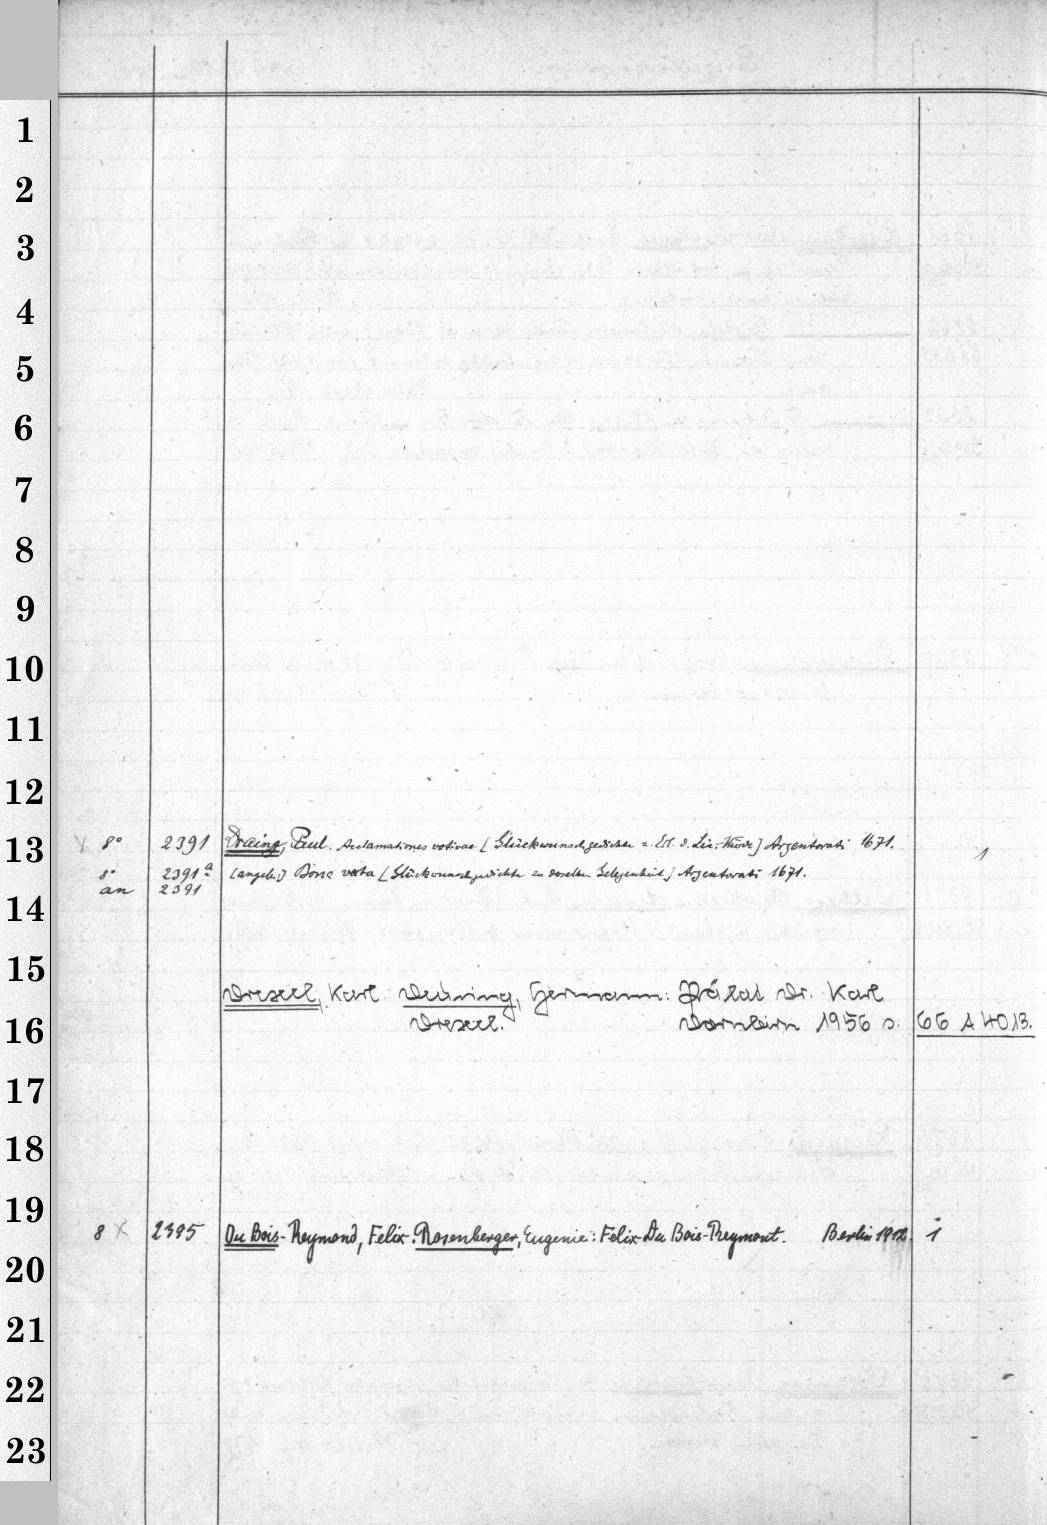 1
2
3
4
5
6
7
8
9
10
11
12
13
14
15
16
17
18
19
20
21
22
23
X 8° 2391 Draing, Paul. Acclamationes votivae [Glückwunschgedichte z. Erl. d. Liz.-Würde] Argentorati 1671. 1
8° 2391a (angeb.) Bona vota [Glückwunschgedichte zu derselben Gelegenheit] Argentorati 1671.
an 2391
Drexel, Karl Deuring, Hermann: Prälat Dr. Karl
Drexel. Dornbirn 1956 66 A 4013.
8 X 2395 Du Bois-Reymond, Felix. Rosenberger, Eugenie: Felix Du Bois-Reymont. Berlin 1912. 1